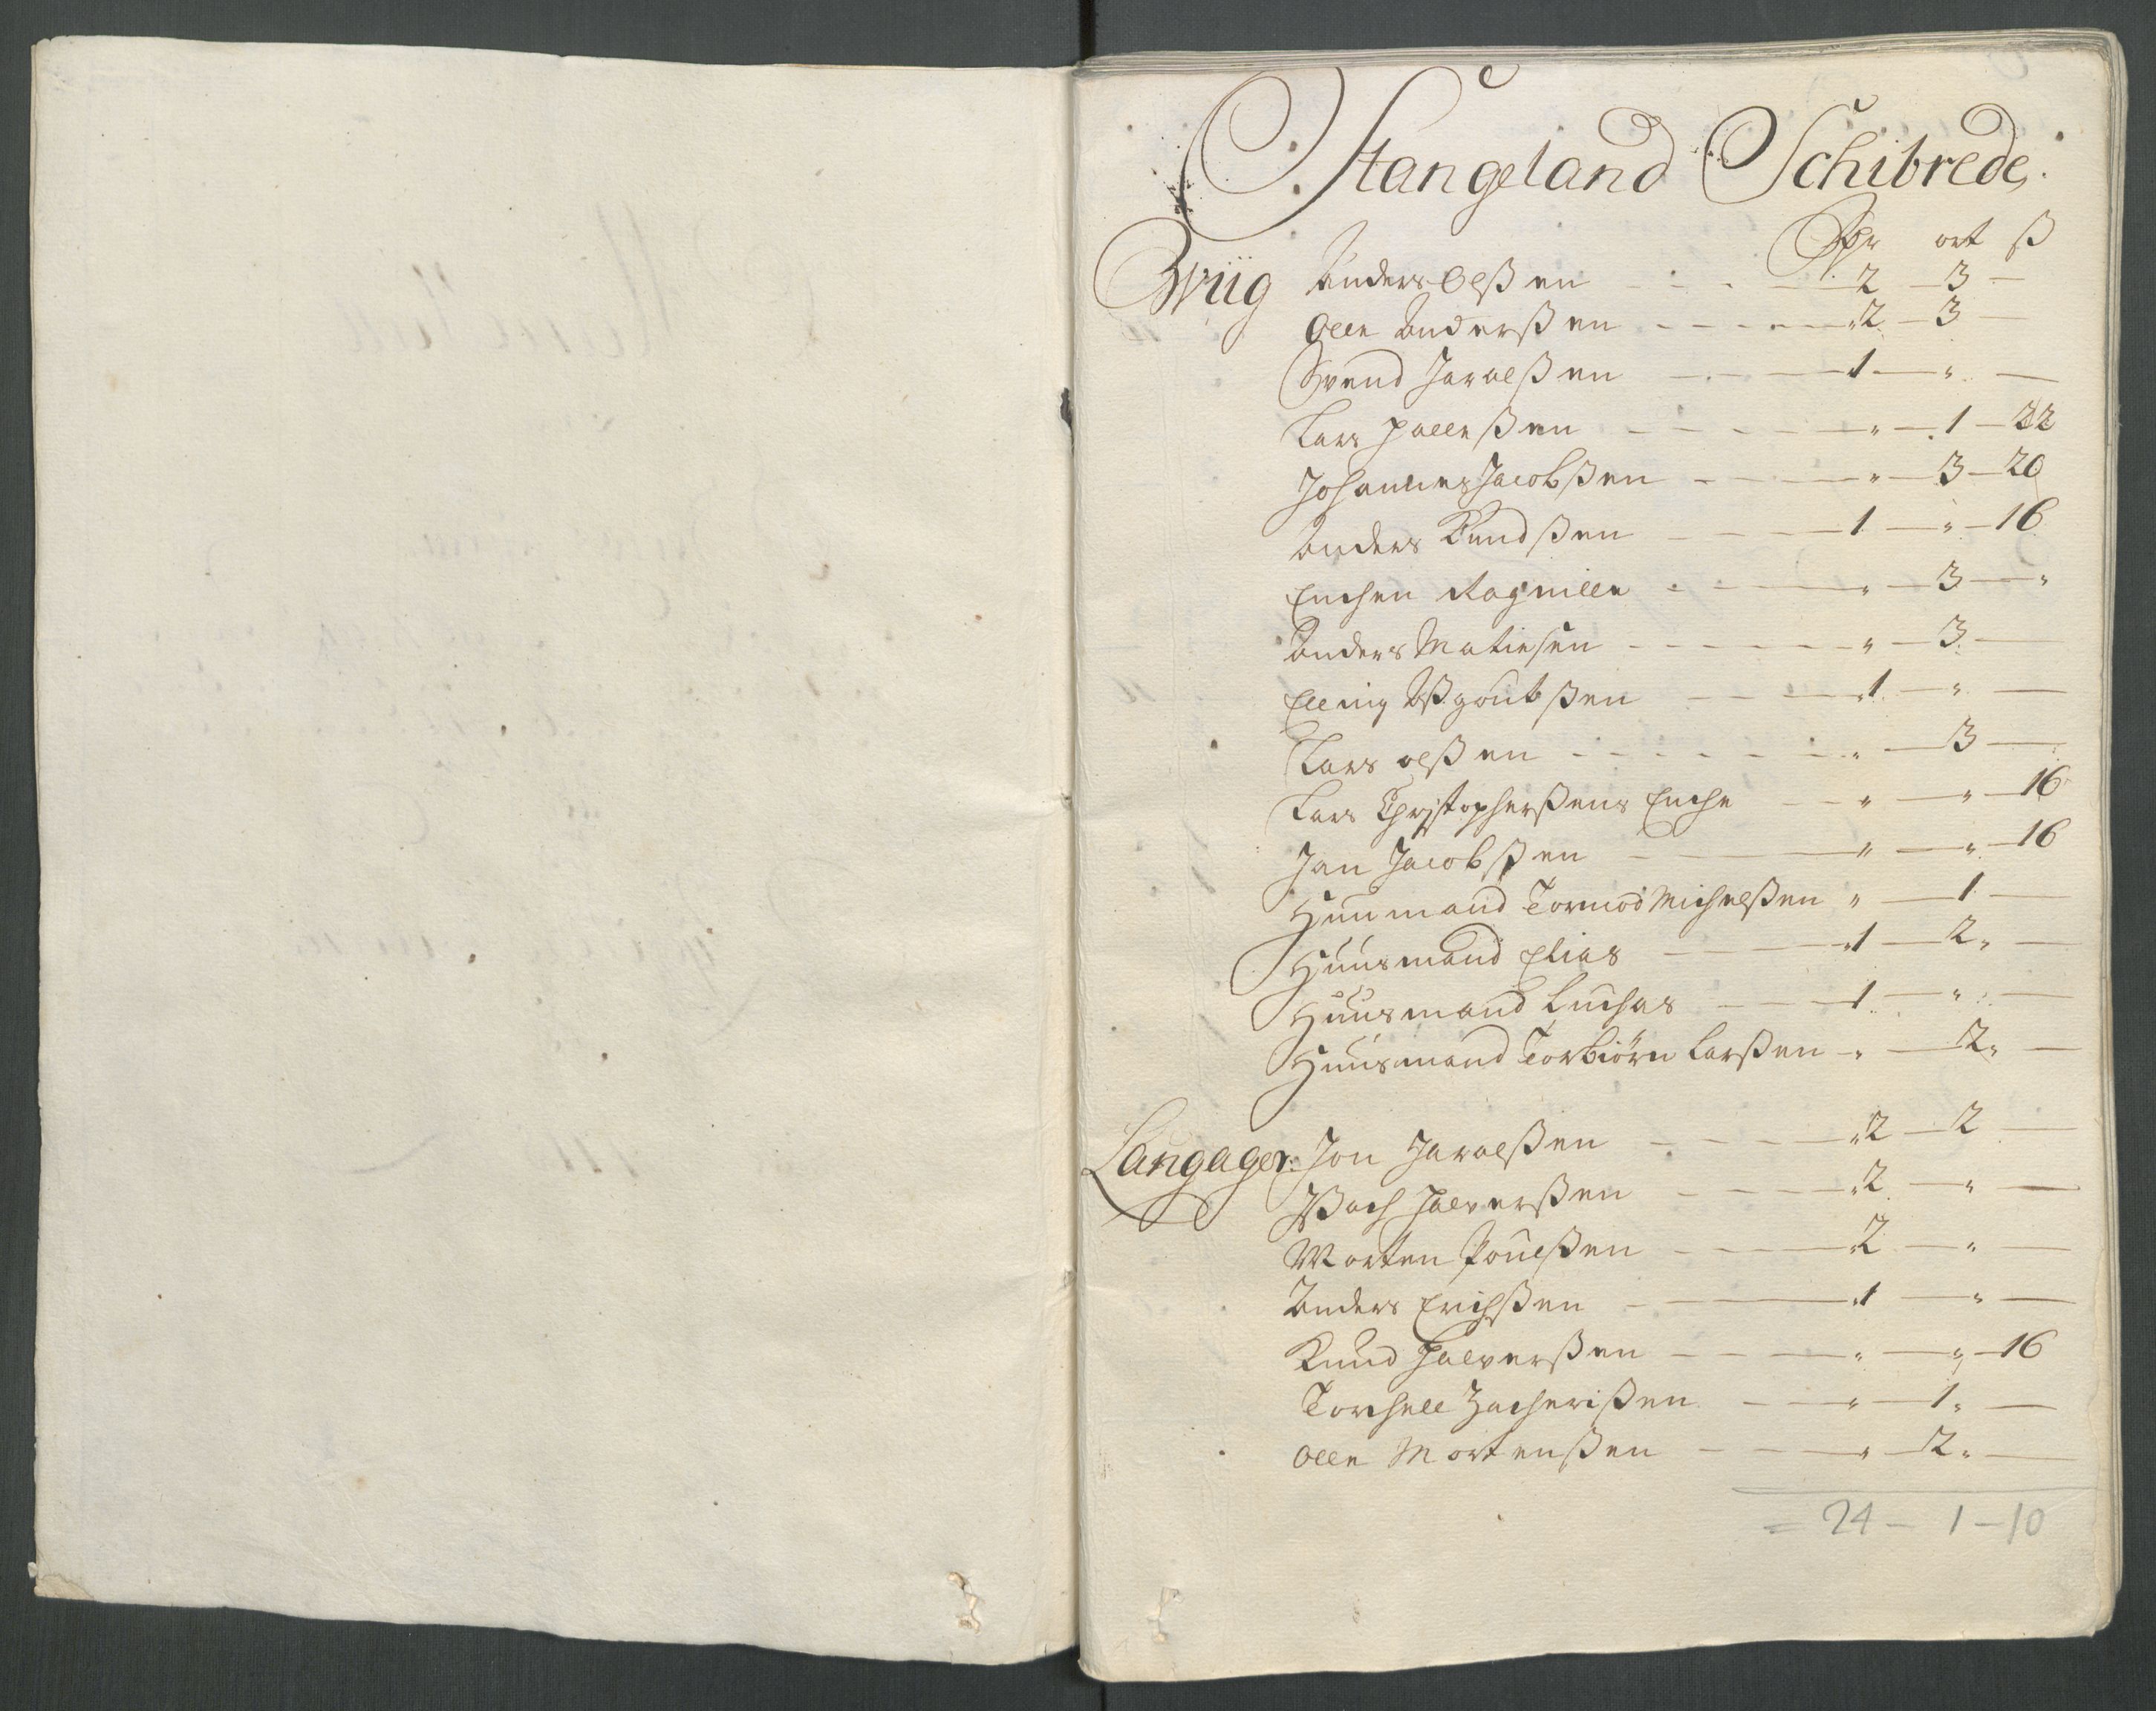 Stangeland Schibrede.
Rdr ort ß
Wiig Anders Olßen - - - 2 - 3 -
Olle Anderßen - - - - 2 - 3 -
Svend Jaralßen - - - 1 - " -
Lars Halleßen - - - " - 1 - 22
Johannes Jacobßen - - - " - 3 - 20
Anders Knudßen - - - 1 - " - 16
Enchen Ragnille - - - " - 3 - "
Anders Matiesen - - - - " - 3 -
Elling Aßgoutßen - - - 1 - " -
Lars olßen - - - - - " - 3 -
Lars Christopherßens Enche - - " - " - 16
Jan Jacobßen - - " - " - 16
Huusmand Tormod Michelßen " - 1 -
Huusmand Elias - - 1 - 2 " -
Huusmand Luchas - - 1 - " -
Huusmand Torbiörn Larßen - " - 2 " -
Langager: Jon Jaralßen - - - 2 - 2 -
Jßach Halverßen - - - 2 - " -
Morten Poulßen - - - 2 - " -
Anders Erichßen - - 1 - " -
Knud Halverßen - - - " - " - 16
Torchell Zacherißen - - " - 1 " -
Olle Mortenßen - - - " - 2 " -
= 24 - 1 - 10